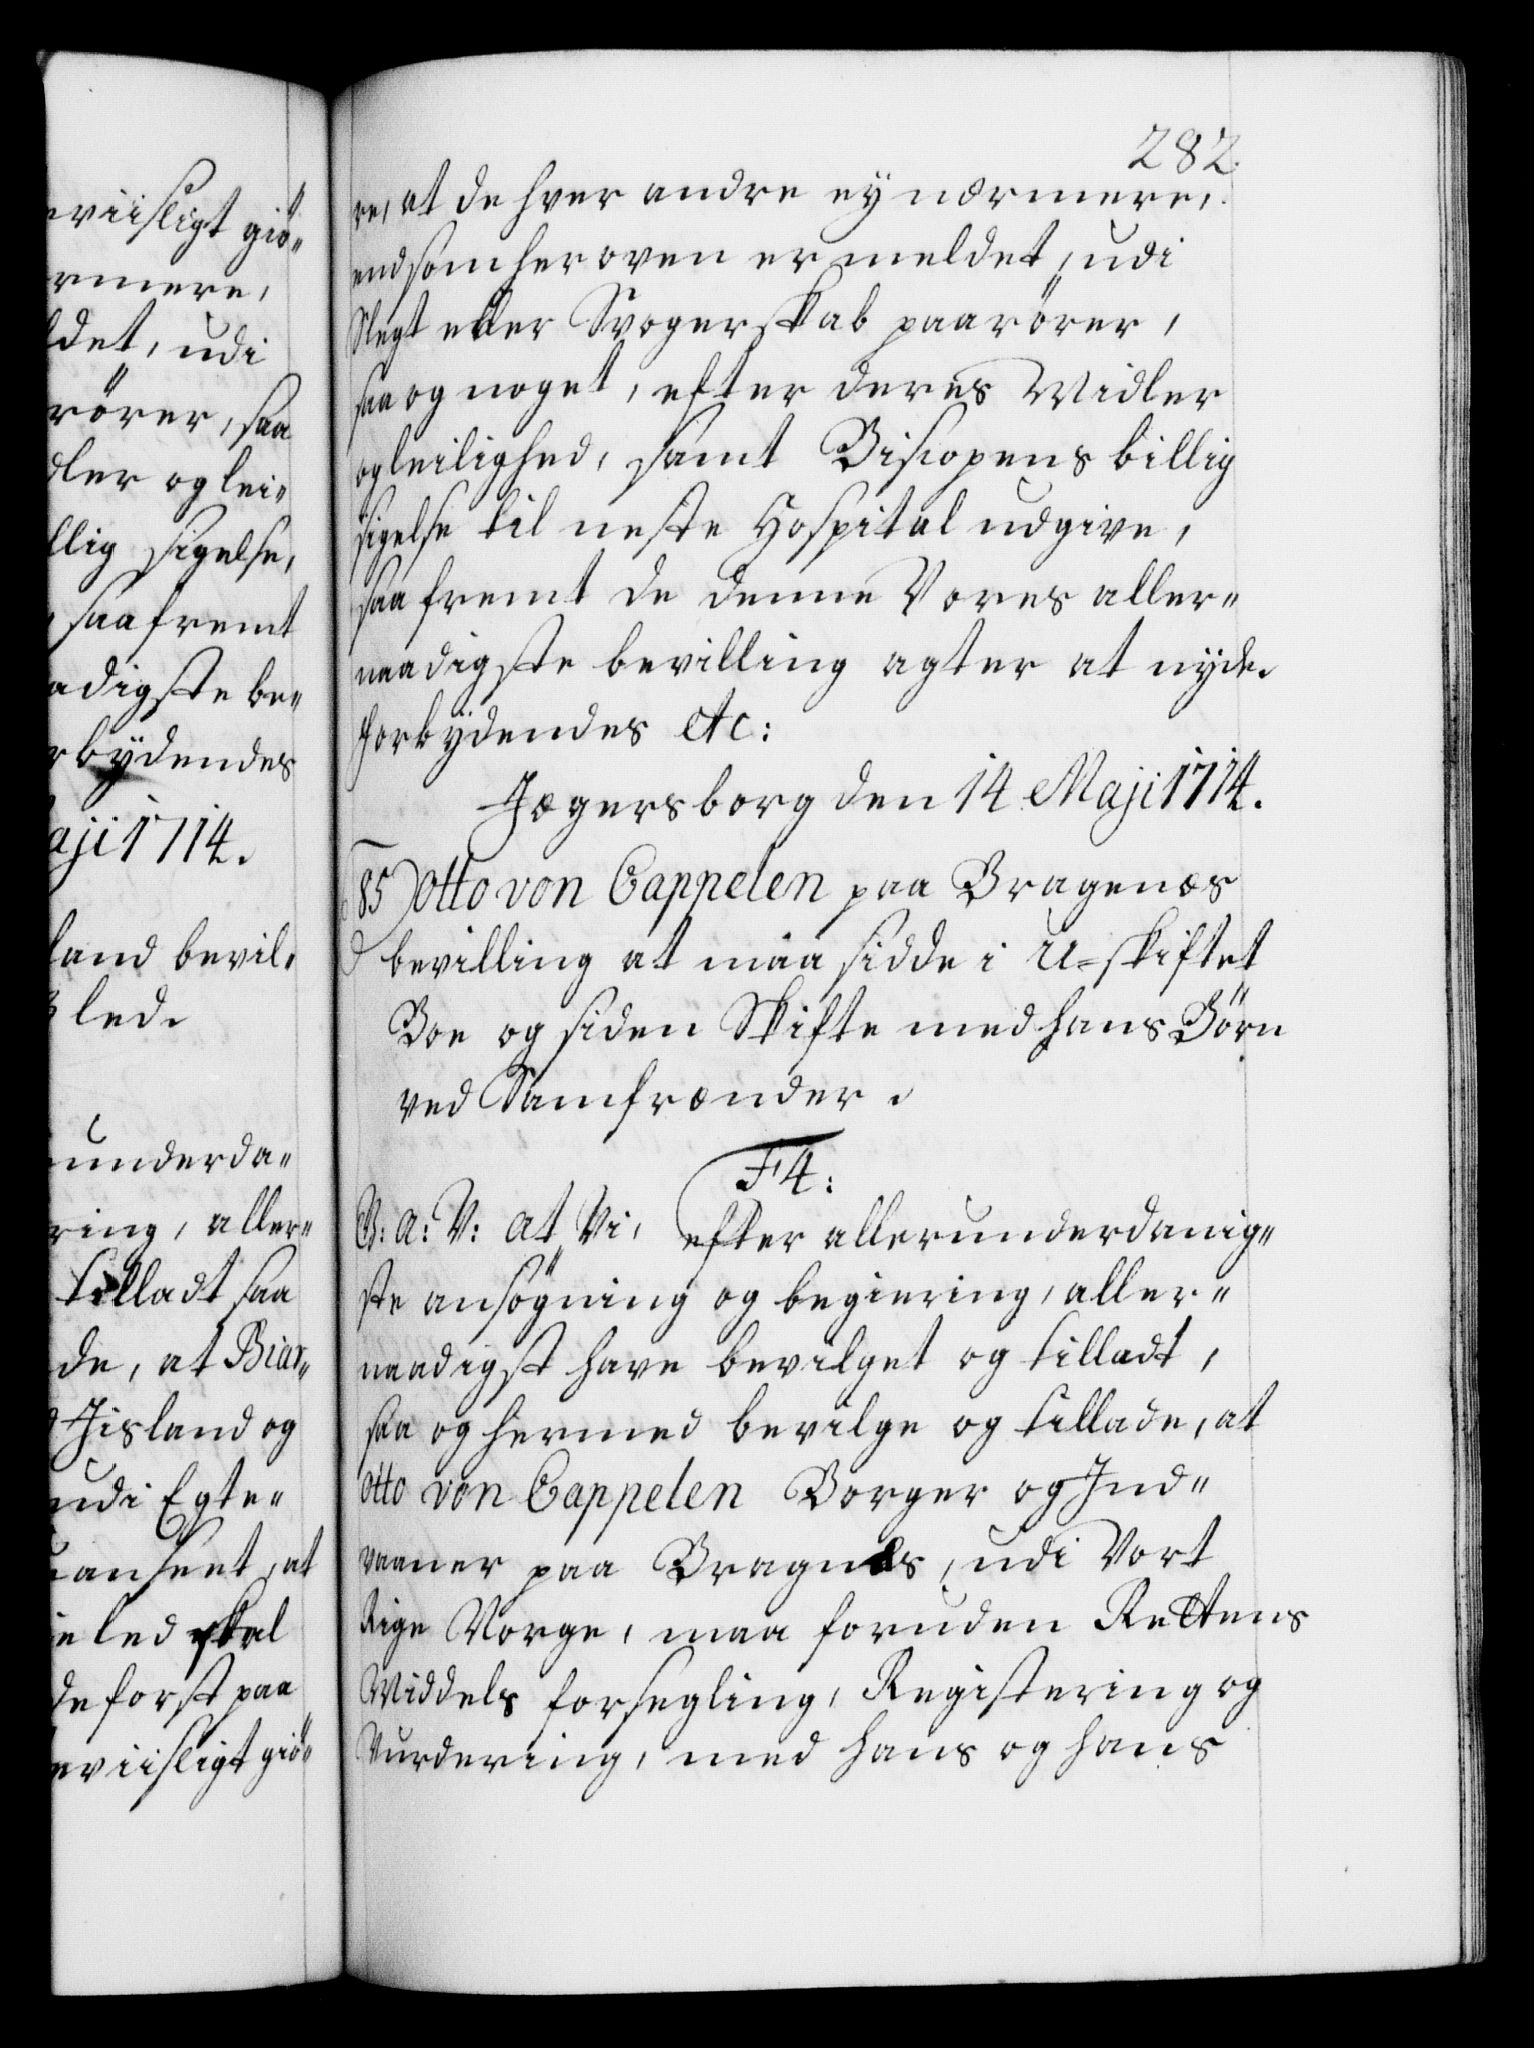 eviisligt giö-
ermere,
ldet, udi
rörer, saa
dler og lei-
llig sigelse,
saafremt
adigste be-
rbÿdendes
aji 1714.
land bevil-
led.
underda-
ring, aller-
tilladt saa
de, at Biar-
Jisland og
udi Egte-
anseet, at
led skal
de forst paa
eviisligt giö-
282.
re, at de hver andre eÿ nærmere,
end som her oven er meldet, udi
Slegt eller Svogerskab paarörer,
saa og noget, efter deres Midler
og leilighed, samt Biscopens billig
sigelse til neste Hospital udgive,
saafremt de denne Vores aller-
naadigste bevilling agter at nyde.
forbÿdendes etc:
Jægersborg den 14 Maji 1714.
85) Otto von Cappelen paa Bragenæs
bevilling at maa sidde i U-skiftet
Boe og siden Skifte med hans Börn
ved Samfrænder.
F4:
G: A: V: at Vi, efter allerunderdanig-
ste ansögning og begiering, aller-
naadigst have bevilget og tilladt,
saa og hermed bevilge og tillade, at
Otto von Cappelen Borger og Ind-
vaaner paa Bragnæs, udi Vort
Rige Norge, maa foruden Rettens
Middels forsegling, Registering og
Vurdering, med hans og hans